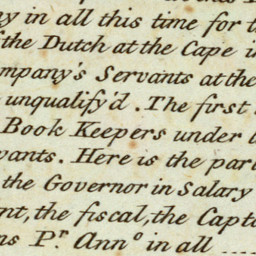 y in all this time for t
the Dutch at the Cape i
ompany's Servants at the
unqualify'd. The first
Book Keepers under
vants. Here is the par
the Governor in Salary
nt, the fiscal, the Capt
ns Pr. Anno in all ....